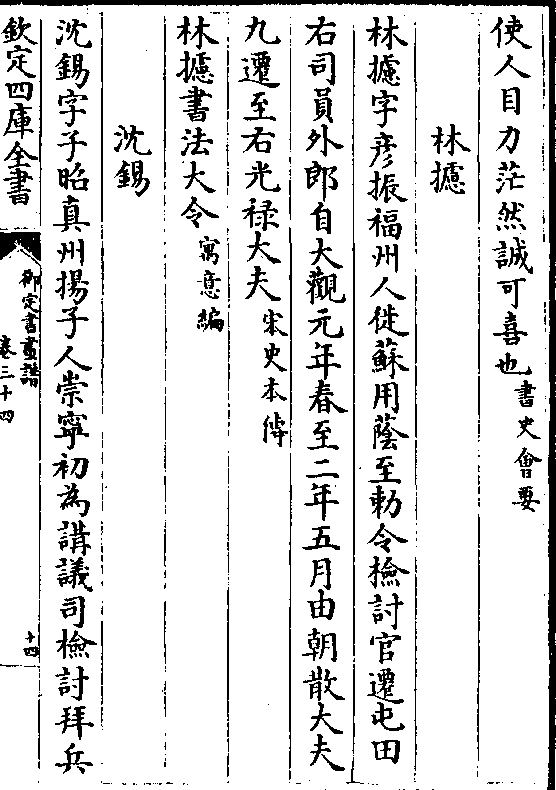 使人目力茫然誠可喜也書史會要
林攄
林攄字彥振福州人徙蘇用蔭至勅令檢討官遷屯田
右司員外郎自大觀元年春至二年五月由朝散大夫
九遷至右光禄大夫宋史本傳
林攄書法大令寓意編
沈錫
沈錫字子昭真州揚子人崇寧初為講議司檢討拜兵
欽定四庫全書
御定書畫譜
卷三十四
十四